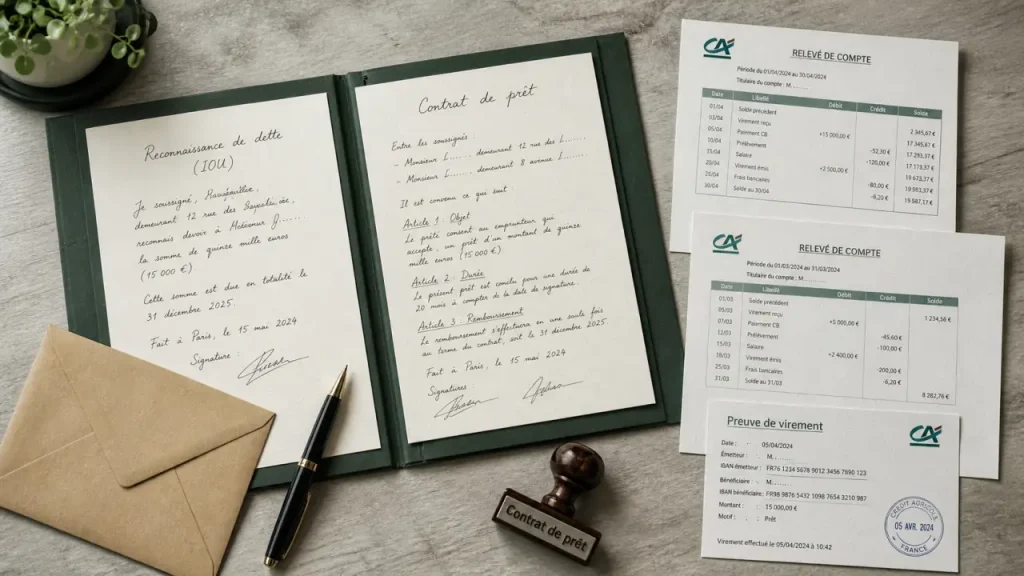 Reconnaissance de dette
(IOU)
Je soussigné,
demeurant 12 rue des
reconnais devoir à Monsieur J......
la somme de quinze mille euros
(15 000 €)
Cette somme est due en totalité le
31 décembre 2025.
Fait à Paris, le 15 mai 2024
Signature :
Contrat de prêt
Entre les soussignés
- Monsieur L......, demeurant 12 rue des L......
- Monsieur L......, demeurant 8 avenue
Il est convenu ce qui suit
Article 1 : Objet
Le prêté consent au emprunteur qui
accepte, un prêt d'un montant de quinze
mille euros (15 000 €)
Article 2 : Durée
Le présent prêt est conslu pour une durée de
20 mois à compter de la date de signature.
Article 3 : Remboursement
Le remboursement s'effectuera en une seule fois
au terme du contrat, soit le 31 décembre 2025.
Fait à Paris, le 15 mai 2024
Signatures
Contrat de prêt
CA
RELEVÉ DE COMPTE
Période du 01/04/2024 au 30/04/2024
Titulaire du compte : M.......
Date Libellé Débit Crédit Solde
01/04 Solde précédent 2 345,67 €
03/04 Virement reçu +15 000,00 € 17 345,67 €
05/04 Paiement CB -52,30 € 17 293,37 €
10/04 Prélèvement -120,00 € 17 173,37 €
15/04 Salaire +2 500,00 € 19 673,37 €
25/04 Virement émis -80,00 €
29/04 Frais bancaires -6,20 €
30/04 Solde au 30/04 19 587,17 €
CA
RELEVÉ DE COMPTE
Période du 01/03/2024 au 31/03/2024
Titulaire du compte : M.......
Date Libellé Débit Crédit Solde
01/03 Solde précédent 1 234,56 €
05/03 Virement reçu +5 000,00 €
07/03 Paiement CB -45,60 €
12/03 Prélèvement -100,00 €
15/03 Salaire +2 400,00 €
18/03 Virement émis -200,00 €
25/03 Frais bancaires -6,20 €
31/03 Solde au 31/03 8 282,76 €
Preuve de virement
CA
Date : 05/04/2024
Émetteur : M.......
IBAN émetteur : FR76 1234 5678 9012 3456 7890 123
Bénéficiaire : M.......
IBAN bénéficiaire : FR98 9876 5432 1098 7654 3210 987
Montant : 15 000,00 €
Motif : Prêt
Virement effectué le 05/04/2024 à 10:42
CRÉDIT AGRICOLE
05 AVR. 2024
FRANCE